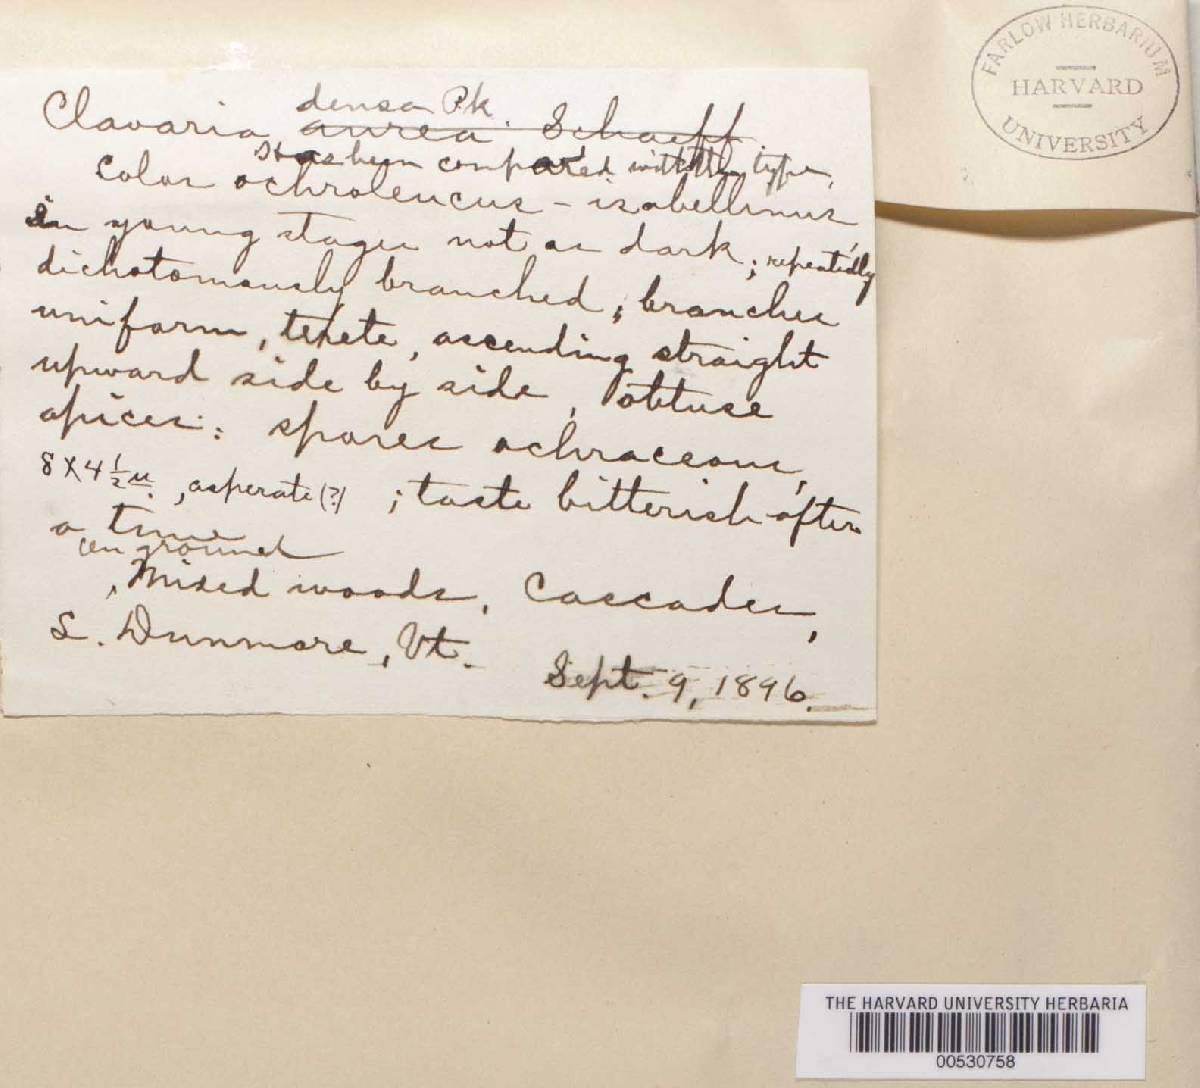 FARLOW HERBARIUM
HARVARD
UNIVERSITY
densa Pk.
Clavaria aurea Schaeff
Has been compared with the type.
Color ochroleucus - isabellinus
in young stages not as dark; repeatedly
dichotomously branched; branches
uniform, terete, ascending straight
upward side by side, obtuse
apices; spores ochraceous,
8 X 4 1/2 µ, asperate (?) ; taste bitterish after
a time
on ground
, Mixed woods, Cascades,
L. Dunmore, Vt.
Sept. 9, 1896.
THE HARVARD UNIVERSITY HERBARIA
00530758